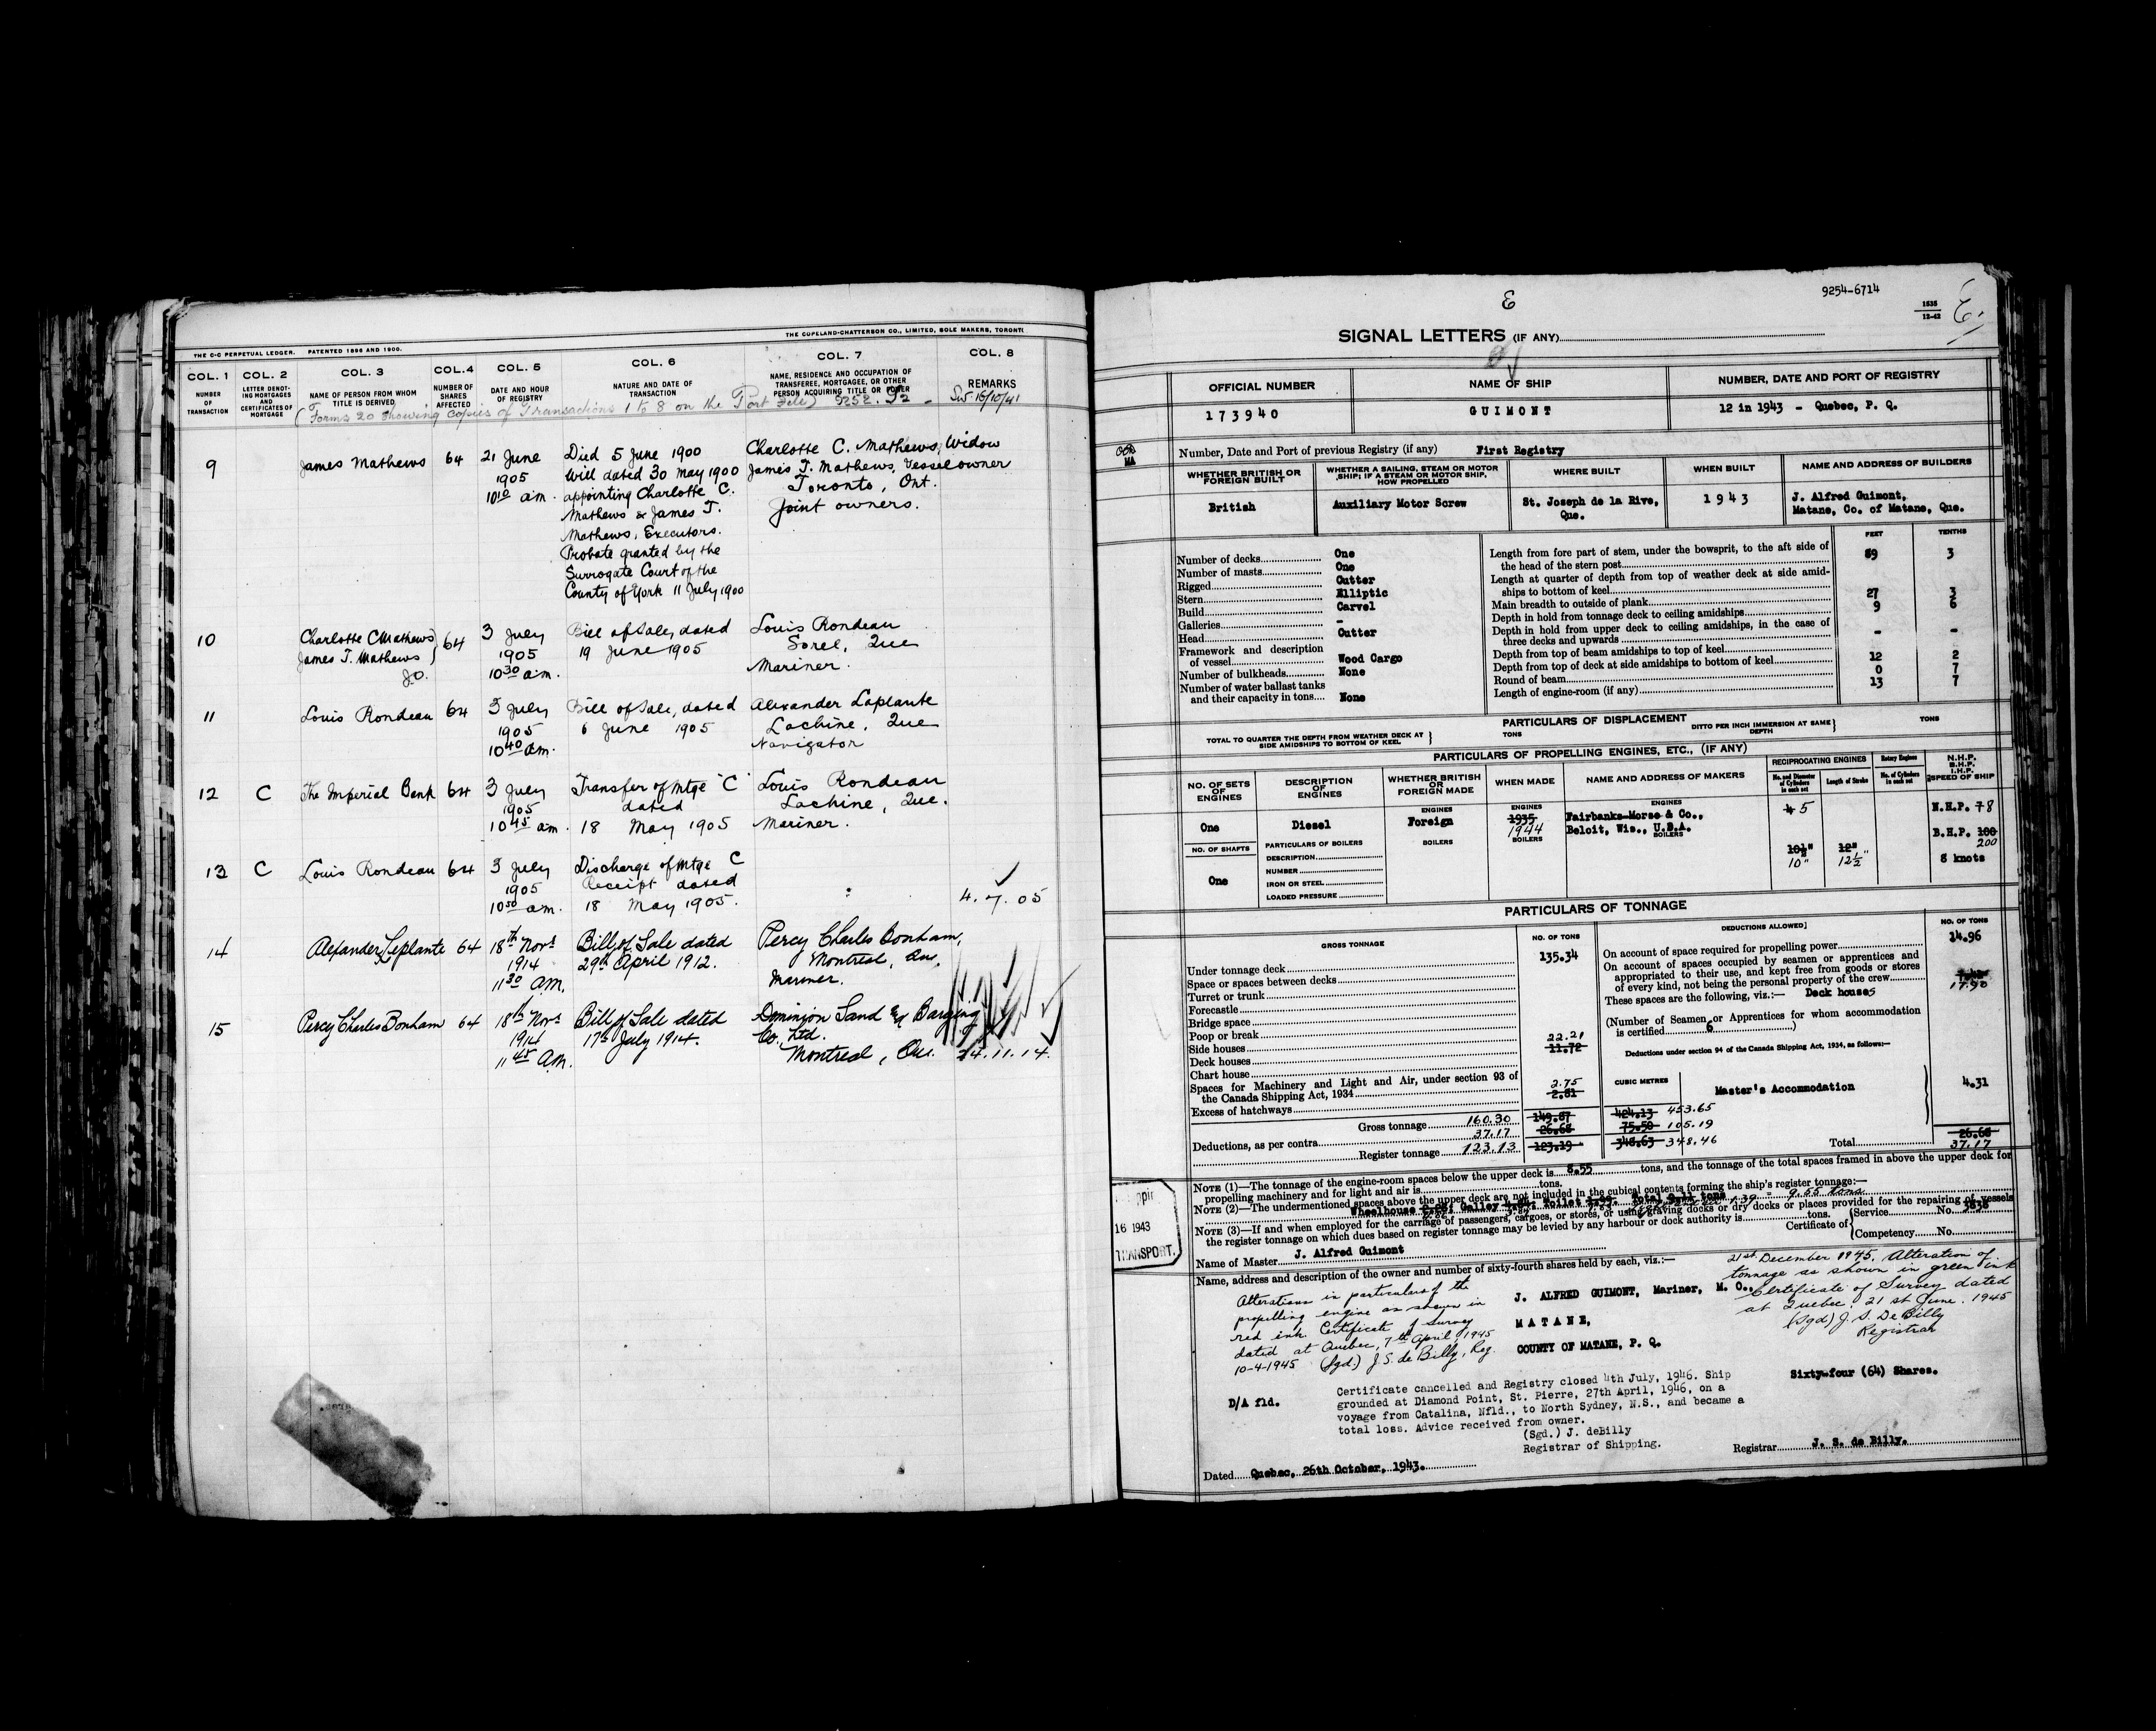 THE C-C PERPETUAL LEDGER. PATENTED 1896 AND 1900.
THE COPELAND-CHATTERSON CO., LIMITED, SOLE MAKERS, TORONTO
COL. 1 COL. 2 COL. 3 COL. 4 COL. 5 COL. 6 COL. 7 COL. 8
NUMBER OF TRANSACTION
LETTER DENOTING MORTGAGES AND CERTIFICATES OF MORTGAGE
NAME OF PERSON FROM WHOM TITLE IS DERIVED
NUMBER OF SHARES AFFECTED
DATE AND HOUR OF REGISTRY
NATURE AND DATE OF TRANSACTION
NAME, RESIDENCE AND OCCUPATION OF TRANSFEREE, MORTGAGEE, OR OTHER PERSON ACQUIRING TITLE OR POWER
REMARKS
(Forms 20 showing copies of Transactions 1 to 8 on the Port File) 9252.
16/10/41
9 James Mathews 64 21 June Died 5 June 1900 Charlotte C. Mathews, Widow
1905 Will dated 30 May 1900 James T. Mathews, Vessel owner
10 10 am. appointing Charlotte C. Toronto, Ont.
Mathews & James T. Joint owners.
Mathews, Executors.
Probate granted by the
Surrogate Court of the
County of York 11 July 1900
10 Charlotte C Mathews 64 3 July Bill of Sale, dated Louis Rondeau
James T. Mathews 1905 19 June 1905 Sorel, Que
Jo. 10 30 am. Mariner.
11 Louis Rondeau 64 3 July Bill of Sale, dated Alexander Laplante
1905 6 June 1905 Lachine, Que
10 40 am. Navigator
12 C The Imperial Bank 64 3 July Transfer of Mtge "C" Louis Rondeau
1905 dated Lachine, Que.
10 45 am. 18 May 1905 Mariner.
13 C Louis Rondeau 64 3 July Discharge of Mtge C
1905 Receipt dated
10 50 am. 18 May 1905. 4.7.05
14 Alexander Leplante 64 18th Novr Bill of Sale dated Percy Charles Bonham,
1914 29th April 1912. Montreal, Que,
11 30 A.M. Mariner.
15 Percy Charles Bonham 64 18th Novr Bill of Sale dated Dominion Sand & Barging
1914 17th July 1914. Co. Ltd.
11 45 A.M. Montreal, Que. 24.11.14.
9254-6714
1535
12-42
SIGNAL LETTERS (IF ANY)
OFFICIAL NUMBER NAME OF SHIP NUMBER, DATE AND PORT OF REGISTRY
173940 GUIMONT 12 in 1943 - Quebec, P. Q.
Number, Date and Port of previous Registry (if any) First Registry
WHETHER BRITISH OR FOREIGN BUILT
WHETHER A SAILING, STEAM OR MOTOR SHIP; IF A STEAM OR MOTOR SHIP, HOW PROPELLED
WHERE BUILT
WHEN BUILT
NAME AND ADDRESS OF BUILDERS
British Auxiliary Motor Screw St. Joseph de la Rive, Que. 1943 J. Alfred Guimont,
Matane, Co. of Matane, Que.
FEET TENTHS
Number of decks One
Number of masts One
Rigged Cutter
Stern Elliptic
Build Carvel
Galleries -
Head Cutter
Framework and description of vessel Wood Cargo
Number of bulkheads None
Number of water ballast tanks and their capacity in tons None
Length from fore part of stem, under the bowsprit, to the aft side of
the head of the stern post 89 3
Length at quarter of depth from top of weather deck at side amid-
ships to bottom of keel
Main breadth to outside of plank 27 3
Depth in hold from tonnage deck to ceiling amidships 9 6
Depth in hold from upper deck to ceiling amidships, in the case of
three decks and upwards - -
Depth from top of beam amidships to top of keel
Depth from top of deck at side amidships to bottom of keel 12 2
Round of beam 0 7
Length of engine-room (if any) 13 7
PARTICULARS OF DISPLACEMENT
TOTAL TO QUARTER THE DEPTH FROM WEATHER DECK AT SIDE AMIDSHIPS TO BOTTOM OF KEEL TONS
DITTO PER INCH IMMERSION AT SAME DEPTH TONS
PARTICULARS OF PROPELLING ENGINES, ETC., (IF ANY)
NO. OF SETS OF ENGINES
DESCRIPTION OF ENGINES
WHETHER BRITISH OR FOREIGN MADE
WHEN MADE
NAME AND ADDRESS OF MAKERS
RECIPROCATING ENGINES
No. and Diameter of Cylinders in each set
Length of Stroke
Rotary Engines
No. of Cylinders in each set
N.H.P. B.H.P. I.H.P. SPEED OF SHIP
ENGINES ENGINES ENGINES
One Diesel Foreign 1935 Fairbanks-Morse & Co., 4 5 N.H.P. 78
1944 Beloit, Wis., U.S.A. B.H.P. 100
200
NO. OF SHAFTS PARTICULARS OF BOILERS BOILERS BOILERS BOILERS
DESCRIPTION
NUMBER 10½" 12"
One IRON OR STEEL 10" 12½" 8 knots
LOADED PRESSURE
PARTICULARS OF TONNAGE
GROSS TONNAGE NO. OF TONS DEDUCTIONS ALLOWED NO. OF TONS
Under tonnage deck 135.34
Space or spaces between decks
Turret or trunk
Forecastle
Bridge space
Poop or break
Side houses 22.21
Deck houses 11.72
Chart house
Spaces for Machinery and Light and Air, under section 93 of
the Canada Shipping Act, 1934 2.75
Excess of hatchways 2.81
Gross tonnage 160.30 149.87 424.13 453.65
Deductions, as per contra 37.17 26.68 75.50 105.19
Register tonnage 123.13 123.19 348.63 348.46
On account of space required for propelling power 14.96
On account of spaces occupied by seamen or apprentices and
appropriated to their use, and kept free from goods or stores
of every kind, not being the personal property of the crew 17.90
These spaces are the following, viz.:— Deck houses
(Number of Seamen or Apprentices for whom accommodation
is certified 6 )
Deductions under section 94 of the Canada Shipping Act, 1934, as follows:—
CUBIC METRES Master's Accommodation 4.31
Total 26.68
37.17
NOTE (1)—The tonnage of the engine-room spaces below the upper deck is 8.55 tons, and the tonnage of the total spaces framed in above the upper deck for
propelling machinery and for light and air is tons.
NOTE (2)—The undermentioned spaces above the upper deck are not included in the cubical contents forming the ship's register tonnage:—
Wheelhouse Galley Toilet Total 1.39 = 9.55 tons
NOTE (3)—If and when employed for the carriage of passengers, cargoes, or stores, or using graving docks or dry docks or places provided for the repairing of vessels
the register tonnage on which dues based on register tonnage may be levied by any harbour or dock authority is tons.
Name of Master J. Alfred Guimont Certificate of Service No. 3838
Competency No.
16 1943
TRANSPORT.
Name, address and description of the owner and number of sixty-fourth shares held by each, viz.:—
Alterations in particulars of the
propelling engine as shown in
red ink. Certificate of Survey
dated at Quebec, 7th April, 1945
10-4-1945 (Sgd.) J.S. de Billy, Reg.
J. ALFRED GUIMONT, Mariner, M. O.,
MATANE,
COUNTY OF MATANE, P. Q.
21st December 1945. Alteration of
tonnage as shown in green ink
Certificate of Survey dated
at Quebec, 21st June. 1945
(Sgd) J. S. De Billy
Registrar
Sixty-four (64) Shares.
D/A fld.
Certificate cancelled and Registry closed 4th July, 1946. Ship
grounded at Diamond Point, St. Pierre, 27th April, 1946, on a
voyage from Catalina, Nfld., to North Sydney, N.S., and became a
total loss. Advice received from owner.
(Sgd.) J. deBilly
Registrar of Shipping.
Registrar J. S. de Billy.
Dated Quebec, 26th October, 1943.